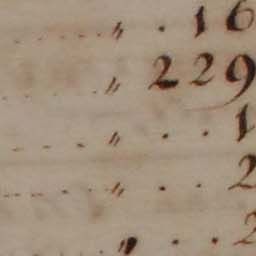 ..... " . 16
..... " 229
..... " . . 1
..... " . . 2
..... " . . 2